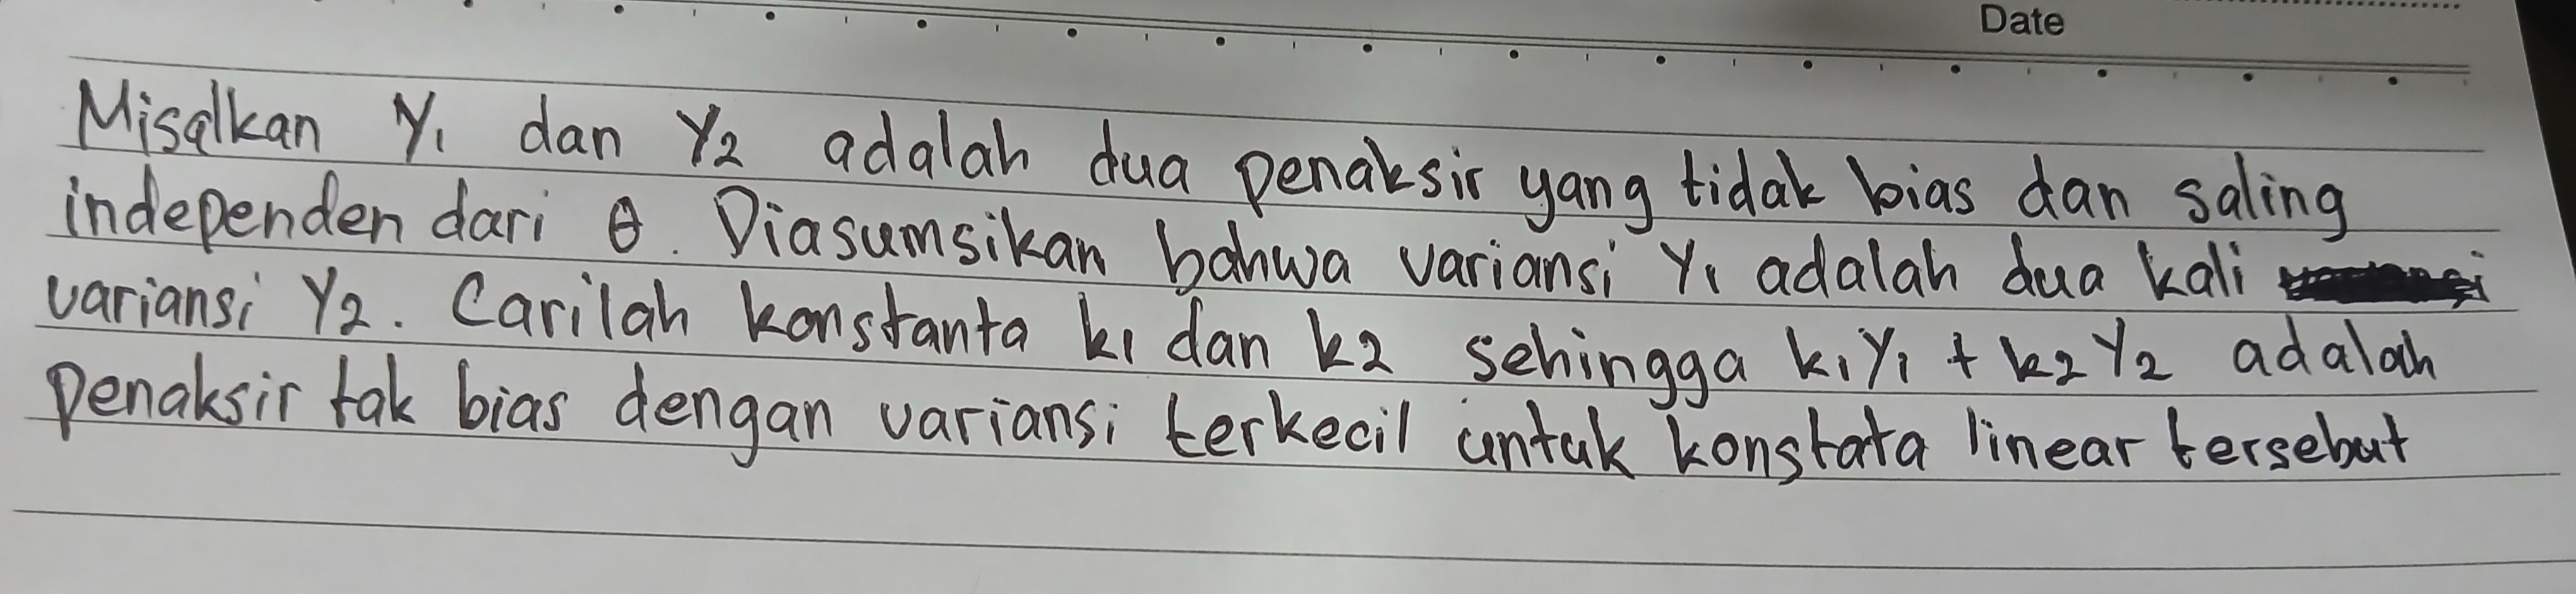 Date
Misalkan Y₁ dan Y₂ adalah dua penaksir yang tidak bias dan saling
independen dari θ. Diasumsikan bahwa variansi Y₁ adalah dua kali
variansi Y₂. Carilah konstanta k₁ dan k₂ sehingga k₁Y₁ + k₂Y₂ adalah
penaksir tak bias dengan variansi terkecil untuk konstata linear tersebut